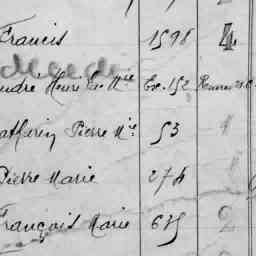 Francis 1596 4
André Henri Ex. Mie Ex. 152 Rennes
Mathurin Pierre Mie 53 1
Pierre Marie 274 1
François Marie 675 2